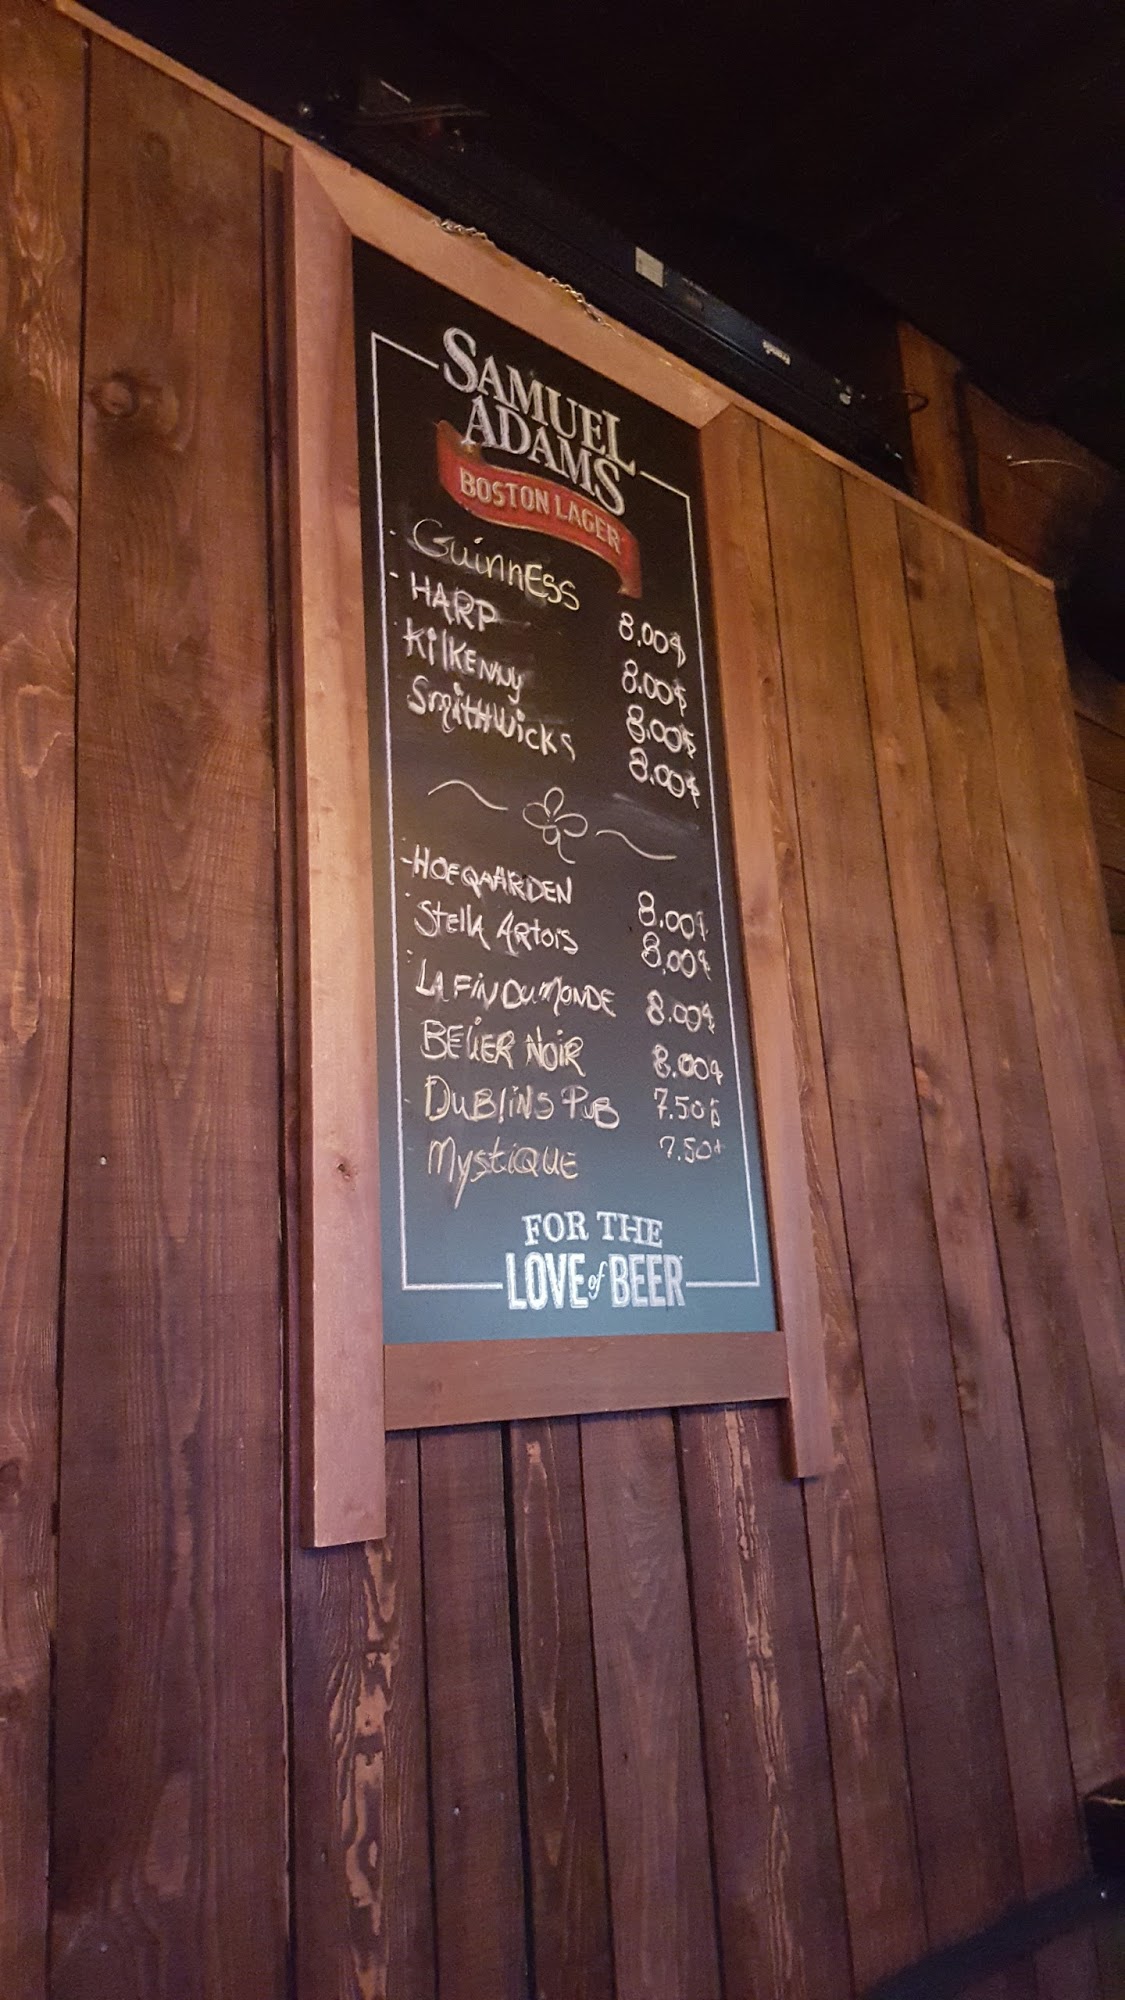 SAMUEL
ADAMS
BOSTON LAGER
- GuinnESS 8.00$
- HARP 8.00$
KilKENNy 8.00$
SmitHwicks 8.00$
- HOEGAARDEN 8.00$
- Stella ARtois 8.00$
- LA FiN Du MONDE 8.00$
BELIER NOiR 8.00$
- DuBliNs PuB 7.50$
MystiQUE 7.50$
FOR THE
LOVE of BEER